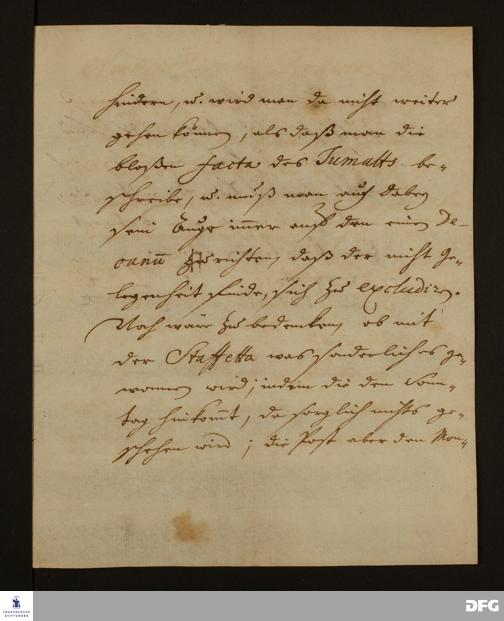 hindern, u. wird man da nicht weiter
gehen können, als daß man die
bloßen facta des Tumults be-
schreibe, u. muß man auch dabey
sein Auge immer auf den einen De-
canū zu richten, daß der nicht Ge-
legenheit finde, sich zu excludir.
Noch wäre zu bedencken, ob mit
der Staffetta was sonderliches ge-
wonnen wird; indem die den Sonn-
tag hinkomt, da sorglich nichts ge-
schehen wird; die Post aber den Mon-
FRANCKESCHE
STIFTUNGEN
DFG